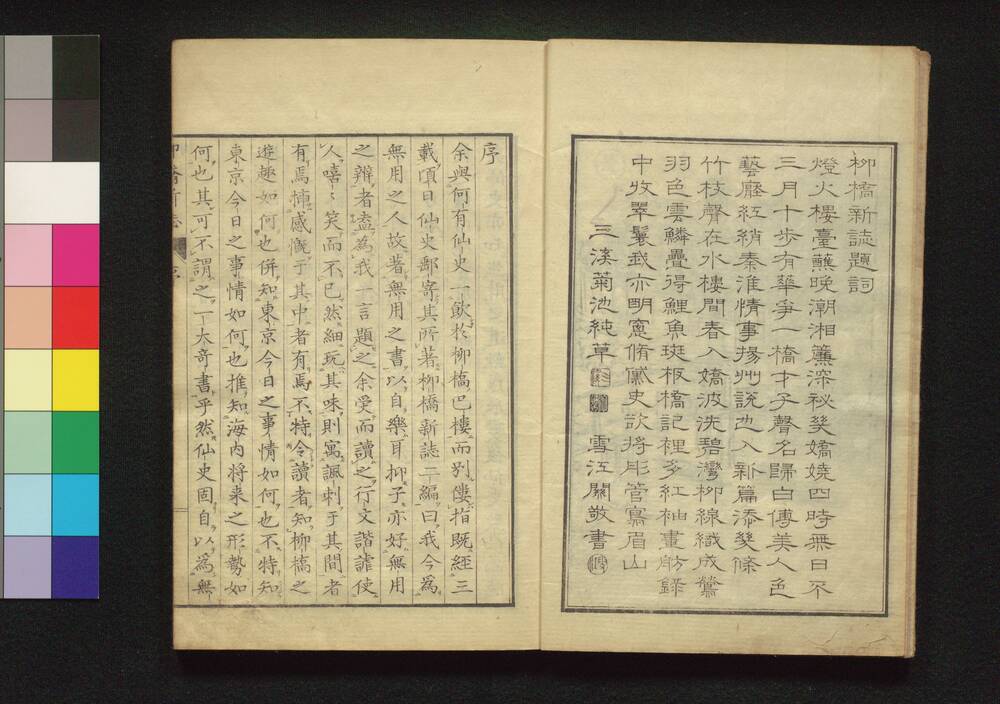 柳橋新誌題詞
燈火樓臺蘸晚潮湘簾深祕幾嬌嬈四時無日不
三月十步有華爭一橋才子聲名歸白傅美人色
藝壓紅綃秦淮情事揚州說也入新篇添幾條
竹枝聲在水樓間春入嬌波洗碧灣柳線織成鶯
羽色雲鱗疊得鯉魚斑板橋記裡多紅袖畫舫錄
中牧翠鬟我亦明窻脩黛史欲將彤管寫眉山
三溪菊池純草
雪江關敬書
序
余與何有仙史一飲於柳橋巴樓而別僂指既經三
載頃日仙史郵寄其所著柳橋新誌二編曰我今爲
無用之人故著無用之書以自樂耳抑子亦好無用
之辯者盍爲我一言題之余受而讀之行文諧謔使
人嘻〻笑而不已然細玩其味則寓諷刺于其間者
有焉揷感慨于其中者有焉不特令讀者知柳橋之
遊趣如何也併知東京今日之事情如何也不特知
東京今日之事情如何也推知海内將來之形勢如
何也其可不謂之一大奇書乎然仙史固自以爲無